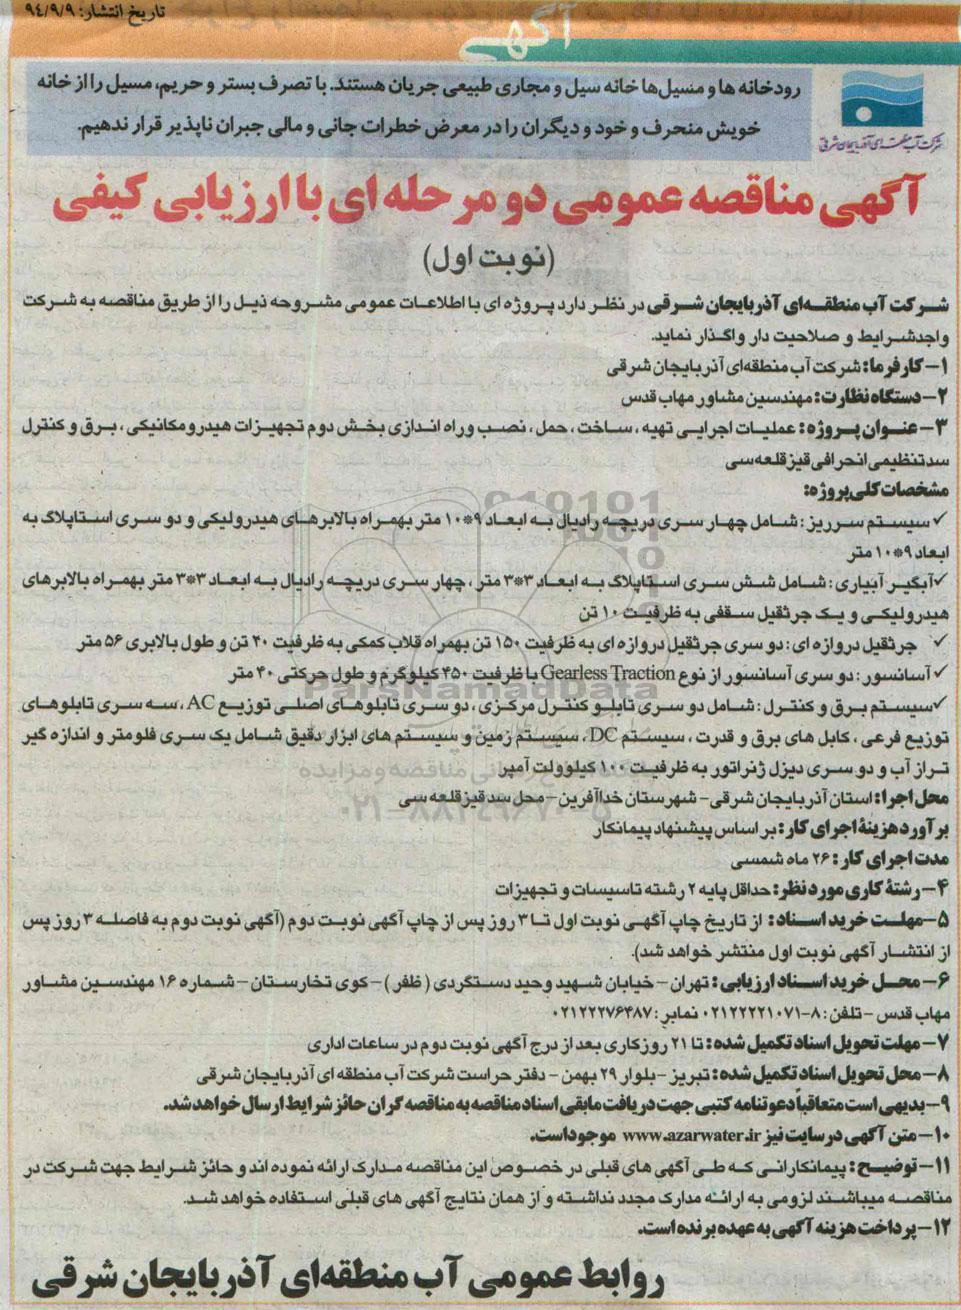 تاریخ انتشار: ۹۴/۹/۹
آگهی
رودخانه ها و مسیل‌ها خانه سیل و مجاری طبیعی جریان هستند. با تصرف بستر و حریم، مسیل را از خانه
خویش منحرف و خود و دیگران را در معرض خطرات جانی و مالی جبران ناپذیر قرار ندهیم.
شرکت آب منطقه‌ای آذربایجان شرقی
آگهی مناقصه عمومی دو مرحله ای با ارزیابی کیفی
(نوبت اول)
شرکت آب منطقه‌ای آذربایجان شرقی در نظر دارد پروژه ای با اطلاعات عمومی مشروحه ذیل را از طریق مناقصه به شرکت
واجدشرایط و صلاحیت دار واگذار نماید.
۱- کارفرما: شرکت آب منطقه‌ای آذربایجان شرقی
۲- دستگاه نظارت: مهندسین مشاور مهاب قدس
۳- عنوان پروژه: عملیات اجرایی تهیه، ساخت، حمل، نصب و راه اندازی بخش دوم تجهیزات هیدرومکانیکی، برق و کنترل
سد تنظیمی انحرافی قیز قلعه سی
مشخصات کلی پروژه:
✓ سیستم سرریز: شامل چهار سری دریچه رادیال به ابعاد ۹*۱۰ متر بهمراه بالابرهای هیدرولیکی و دو سری استاپلاگ به
ابعاد ۹*۱۰ متر
✓ آبگیر آبیاری: شامل شش سری استاپلاگ به ابعاد ۳*۳ متر، چهار سری دریچه رادیال به ابعاد ۳*۳ متر بهمراه بالابرهای
هیدرولیکی و یک جرثقیل سقفی به ظرفیت ۱۰ تن
✓ جرثقیل دروازه ای: دو سری جرثقیل دروازه ای به ظرفیت ۱۵۰ تن بهمراه قلاب کمکی به ظرفیت ۲۰ تن و طول بالابری ۵۶ متر
✓ آسانسور: دو سری آسانسور از نوع Gearless Traction با ظرفیت ۴۵۰ کیلوگرم و طول حرکتی ۴۰ متر
✓ سیستم برق و کنترل: شامل دو سری تابلو کنترل مرکزی، دو سری تابلوهای اصلی توزیع AC، سه سری تابلوهای
توزیع فرعی، کابل های برق و قدرت، سیستم DC، سیستم زمین و سیستم های ابزار دقیق شامل یک سری فلومتر و اندازه گیر
تراز آب و دو سری دیزل ژنراتور به ظرفیت ۱۰۰ کیلوولت آمپر
محل اجرا: استان آذربایجان شرقی- شهرستان خداآفرین- محل سد قیز قلعه سی
برآورد هزینهٔ اجرای کار: بر اساس پیشنهاد پیمانکار
مدت اجرای کار: ۲۶ ماه شمسی
۴- رشتهٔ کاری مورد نظر: حداقل پایه ۲ رشته تاسیسات و تجهیزات
۵- مهلت خرید اسناد: از تاریخ چاپ آگهی نوبت اول تا ۳ روز پس از چاپ آگهی نوبت دوم (آگهی نوبت دوم به فاصله ۳ روز پس
از انتشار آگهی نوبت اول منتشر خواهد شد).
۶- محل خرید اسناد ارزیابی: تهران- خیابان شهید وحید دستگردی (ظفر)- کوی تخارستان- شماره ۱۶ مهندسین مشاور
مهاب قدس- تلفن: ۸-۰۲۱۲۲۲۲۱۰۷۱ نمابر: ۰۲۱۲۲۲۷۶۴۸۷
۷- مهلت تحویل اسناد تکمیل شده: تا ۲۱ روز کاری بعد از درج آگهی نوبت دوم در ساعات اداری
۸- محل تحویل اسناد تکمیل شده: تبریز- بلوار ۲۹ بهمن- دفتر حراست شرکت آب منطقه ای آذربایجان شرقی
۹- بدیهی است متعاقباً دعوتنامه کتبی جهت دریافت مابقی اسناد مناقصه به مناقصه گران حائز شرایط ارسال خواهد شد.
۱۰- متن آگهی در سایت نیز www.azarwater.ir موجود است.
۱۱- توضیح: پیمانکارانی که طی آگهی های قبلی در خصوص این مناقصه مدارک ارائه نموده اند و حائز شرایط جهت شرکت در
مناقصه میباشند لزومی به ارائه مدارک مجدد نداشته و از همان نتایج آگهی های قبلی استفاده خواهد شد.
۱۲- پرداخت هزینه آگهی به عهده برنده است.
روابط عمومی آب منطقه‌ای آذربایجان شرقی
ParsNamadData
۰۲۱-۸۸۳۴۹۶۷۰-۵